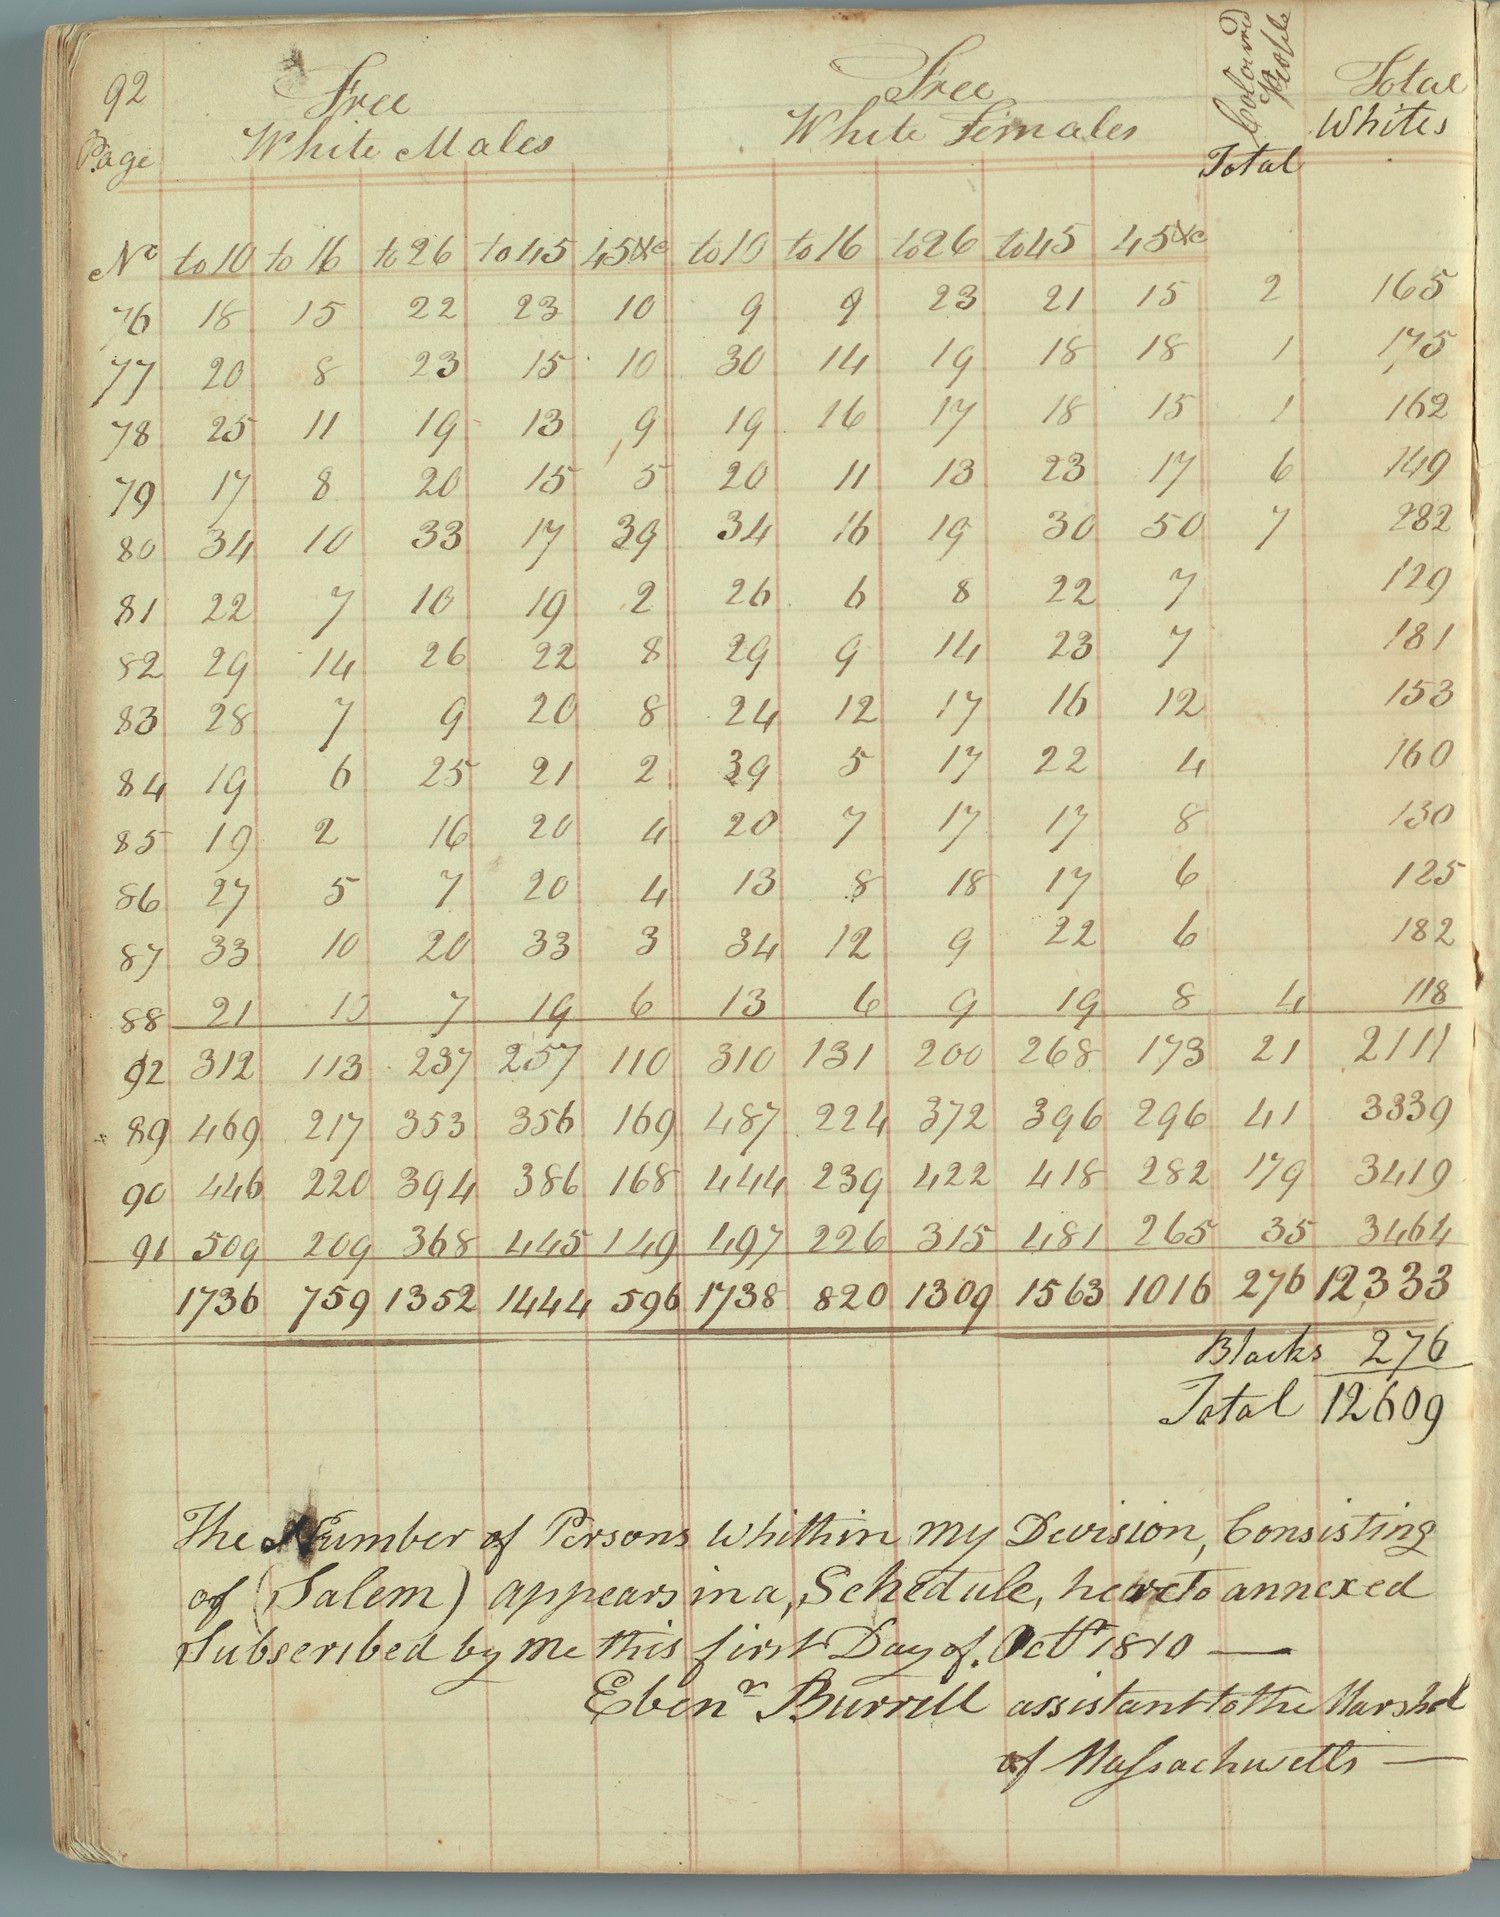 92 Free Free Coloured People Total
Page White Males White Females Total Whites
No to 10 to 16 to 26 to 45 45&c to 10 to 16 to 26 to 45 45&c
76 18 15 22 23 10 9 9 23 21 15 2 165
77 20 8 23 15 10 30 14 19 18 18 1 175
78 25 11 19 13 9 19 16 17 18 15 1 162
79 17 8 20 15 5 20 11 13 23 17 6 149
80 34 10 33 17 39 34 16 19 30 50 7 282
81 22 7 10 19 2 26 6 8 22 7 129
82 29 14 26 22 8 29 9 14 23 7 181
83 28 7 9 20 8 24 12 17 16 12 153
84 19 6 25 21 2 39 5 17 22 4 160
85 19 2 16 20 4 20 7 17 17 8 130
86 27 5 7 20 4 13 8 18 17 6 125
87 33 10 20 33 3 34 12 9 22 6 182
88 21 10 7 19 6 13 6 9 19 8 4 118
92 312 113 237 257 110 310 131 200 268 173 21 2111
89 469 217 353 356 169 487 224 372 396 296 41 3339
90 446 220 394 386 168 444 239 422 418 282 179 3419
91 509 209 368 445 149 497 226 315 481 265 35 3464
1736 759 1352 1444 596 1738 820 1309 1563 1016 276 12333
Blacks 276
Total 12609
The Number of Persons Whithin my Devision, Consisting
of (Salem) appears in a, Schedule, hereto annexed
Subscribed by me this first Day of. Octr 1810 —
Ebenr Burrill assistant to the Marshal
of Massachusetts —